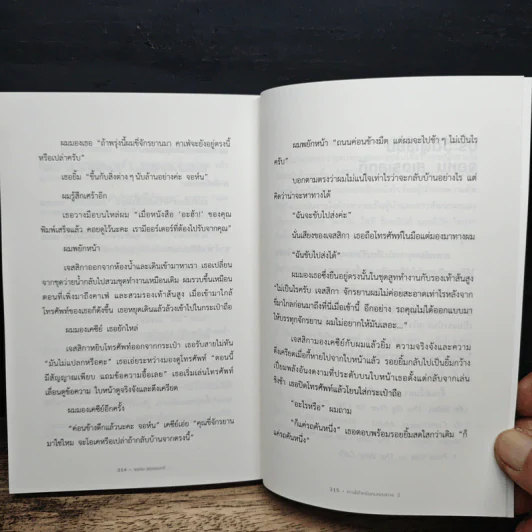 ผมมองเธอ “ถ้าพรุ่งนี้ผมขี่จักรยานมา คาเฟ่จะยังอยู่ตรงนี้
หรือเปล่าครับ”
เธอยิ้ม “ขึ้นกับสิ่งต่างๆ นับล้านอย่างค่ะ จอห์น”
ผมรู้สึกเศร้าอีก
เธอวางมือบนไหล่ผม “เมื่อหนังสือ ‘อะฮ้า!’ ของคุณ
พิมพ์เสร็จแล้ว คอยดูไว้นะคะ เรามีออร์เดอร์ที่ต้องไปรับจากคุณ”
ผมพยักหน้า
เจสสิกาออกจากห้องน้ำและเดินเข้ามาหาเรา เธอเปลี่ยน
จากชุดว่ายน้ำกลับไปสวมชุดทำงานเหมือนเดิม ผมรวบขึ้นเหมือน
ตอนที่เพิ่งมาถึงคาเฟ่ และสวมรองเท้าส้นสูง เมื่อเข้ามาใกล้
โทรศัพท์ของเธอก็ดังขึ้น เธอหยุดเดินแล้วล้วงเข้าไปในกระเป๋าถือ
ผมมองเคซีย์ เธอยักไหล่
เจสสิกาหยิบโทรศัพท์ออกจากกระเป๋า เธอรับสายไม่ทัน
“มันไม่แปลกหรือคะ” เธอเอ่ยระหว่างมองดูโทรศัพท์ “ตอนนี้
มีสัญญาณเพียบ แถมข้อความอื้อเลย” เธอเริ่มเล่นโทรศัพท์
เลื่อนดูข้อความ ใบหน้าดูจริงจังและตึงเครียด
ผมมองเคซีย์อีกครั้ง
“ค่อนข้างดึกแล้วนะคะ จอห์น” เคซีย์เอ่ย “คุณขี่จักรยาน
มาใช่ไหม จะโอเคหรือเปล่าถ้ากลับบ้านจากตรงนี้”
ผมพยักหน้า “ถนนค่อนข้างมืด แต่ผมจะไปช้าๆ ไม่เป็นไร
ครับ”
บอกตามตรงว่าผมไม่แน่ใจเท่าไรว่าจะกลับบ้านอย่างไร แต่
คิดว่าน่าจะหาทางได้
“ฉันจะขับไปส่งค่ะ”
นั่นเสียงของเจสสิกา เธอถือโทรศัพท์ในมือแต่มองมาทางผม
“ฉันขับไปส่งได้”
ผมมองเธอซึ่งยืนอยู่ตรงนั้นในชุดสูททำงานกับรองเท้าส้นสูง
“ไม่เป็นไรครับ เจสสิกา จักรยานผมไม่ค่อยสะอาดเท่าไรหลังจาก
ขี่มาไกลก่อนมาถึงที่นี่เมื่อเช้านี้ อีกอย่าง รถคุณไม่ได้ออกแบบมา
ให้บรรทุกจักรยาน ผมไม่อยากให้มันเลอะ...”
เจสสิกามองเคซีย์กับผมแล้วยิ้ม ความจริงจังและความ
ตึงเครียดเมื่อกี้หายไปจากใบหน้าแล้ว รอยยิ้มกลับไปเป็นยิ้มกว้าง
“อะไรหรือ” ผมถาม
“ก็แค่รถคันหนึ่ง” เธอตอบพร้อมรอยยิ้มสดใสกว่าเดิม “ก็
แค่รถคันหนึ่ง”